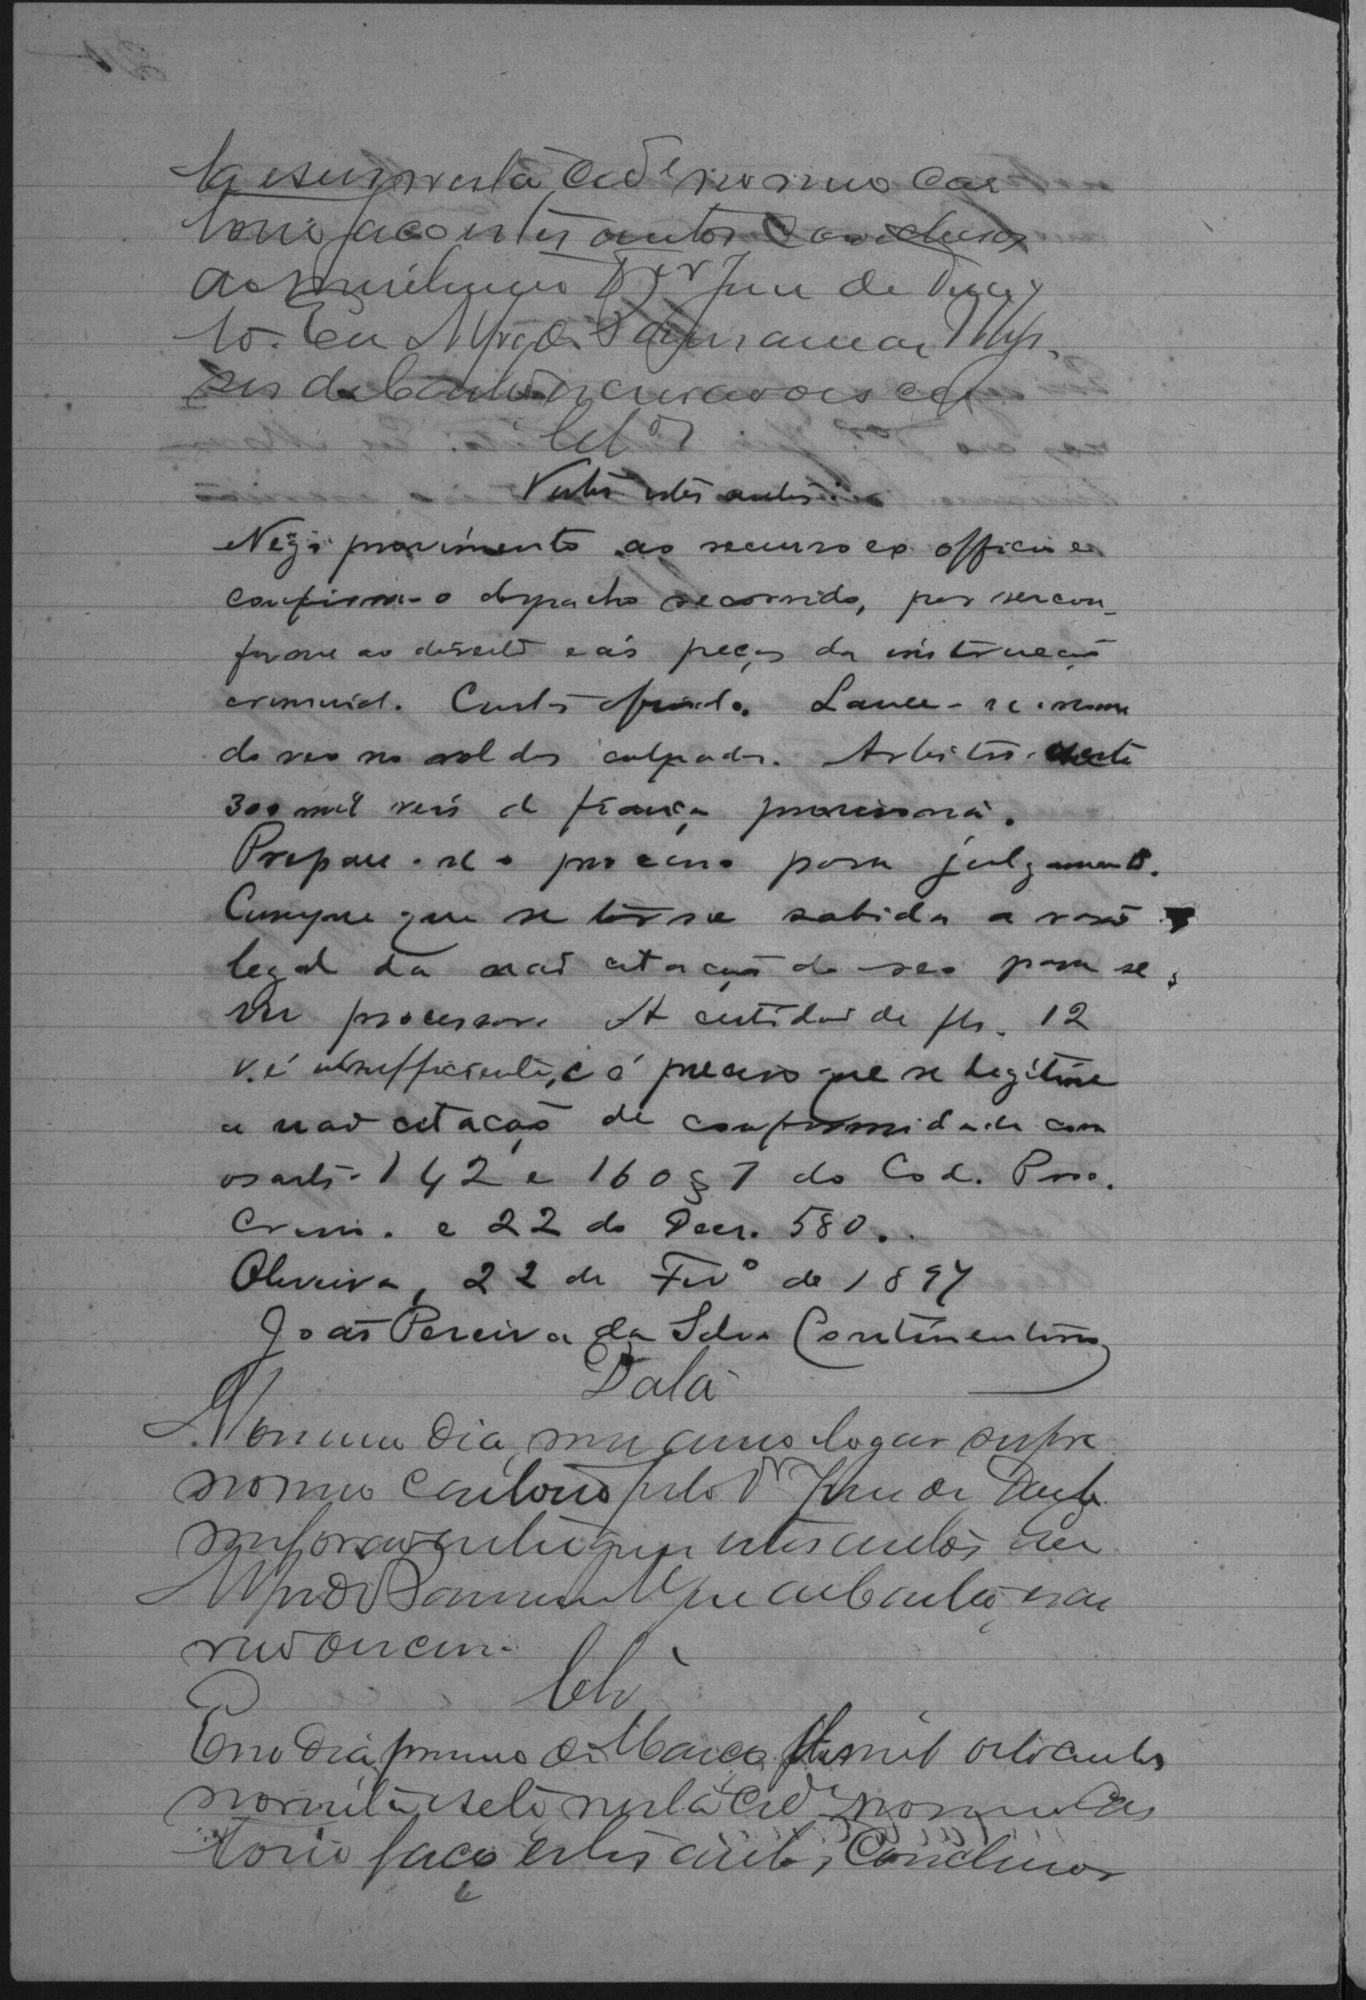 ta e sete nesta Cid.e no meo Car
torio faço estes autos Conclusos
ao Meritissimo Dr Juiz de Direi
to. Eu Alfredo
Cls
Vistos estes autos.
Nego provimento ao recurso ex officio e
confirmo o despacho recorrido, por ser con-
forme ao direito e ás peças da instrucção
criminal. Custas afinal. Lance-se o nome
do reo no rol dos culpados. Arbitro neste
300 mil reis de fiança provisoria.
Prepare-se o processo para julgamento.
Cumpre que se torne sabida a rasão
legal da não citação do reo para se
ver processar. A certidão de fls. 12
v. é insufficiente, e é preciso que se legitime
a não citação de conformidade com
os arts. 142 e 160 § 7 do Cod. Proc.
Crim. e 22 do Decr. 580.
Oliveira, 22 de Fev.o de 1897
João Pereira da Silva Continentino
Data
No mesmo dia, mez anno e logar supra
no meo Cartorio pelo Dr Juiz de Direito
me foram entregues estes autos Eu
Alfredo
escrevi.
Cls
Em o dia primeiro de Março de mil oito centos
noventa e sete nesta Cid.e no meo Car
torio faço estes autos Conclusos